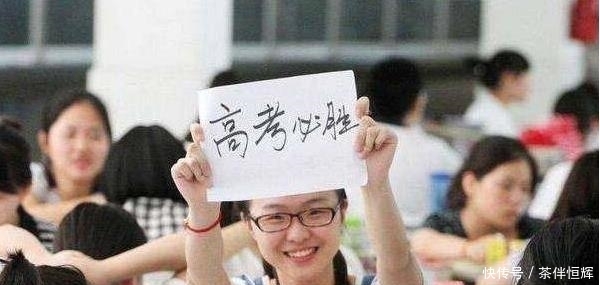 高考必胜
快传号/茶伴恒辉